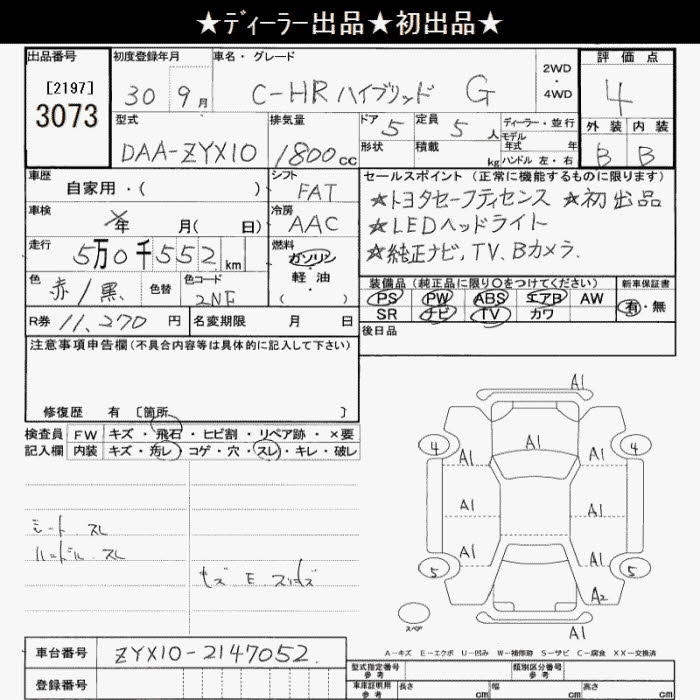 ★ディーラー出品★初出品★
出品番号 初度登録年月 車名・グレード 評価点
[2197] 30 9月 C-HR ハイブリッド G 2WD・4WD 4
3073
型式 排気量 ドア 5 定員 5人 ディーラー・並行 外装 内装
モデル年式 年
DAA-ZYX10 1800cc 形状 積載 kg ハンドル 左・右 B B
車歴 シフト セールスポイント(正常に機能するものに限ります)
自家用・( ) FAT ★トヨタセーフティセンス ★初出品
車検 年 月( 日) 冷房 AAC ★LEDヘッドライト
走行 5万0千552km 燃料 ガソリン・軽油 ( ) ★純正ナビ,TV,Bカメラ.
色 赤/黒 色替 色コード 2NF 装備品(純正品に限り○をつけてください) 新車保証書
PS PW ABS エアB AW 有・無
R券 11,270円 名変期限 月 日 SR ナビ TV カワ
注意事項申告欄(不具合内容等は具体的に記入して下さい) 後日品
修復歴 有 [箇所 ]
検査員 FW キズ・飛石・ヒビ割・リペア跡・×要
記入欄 内装 キズ・汚レ・コゲ・穴・スレ・キレ・破レ
A1
4 A1 4
A1 A1
A1 A1
シート スレ
ハンドル スレ
A1 A1
5 5
キズ E
A2
スペア A1
A-キズ E-エクボ U-凹み W-補修跡 S-サビ C-腐食 XX-交換済
車台番号 ZYX10-2147052
型式指定番号 参考 類別区分番号 参考
登録番号 車庫証明用 参考 長さ cm 幅 cm 高さ cm